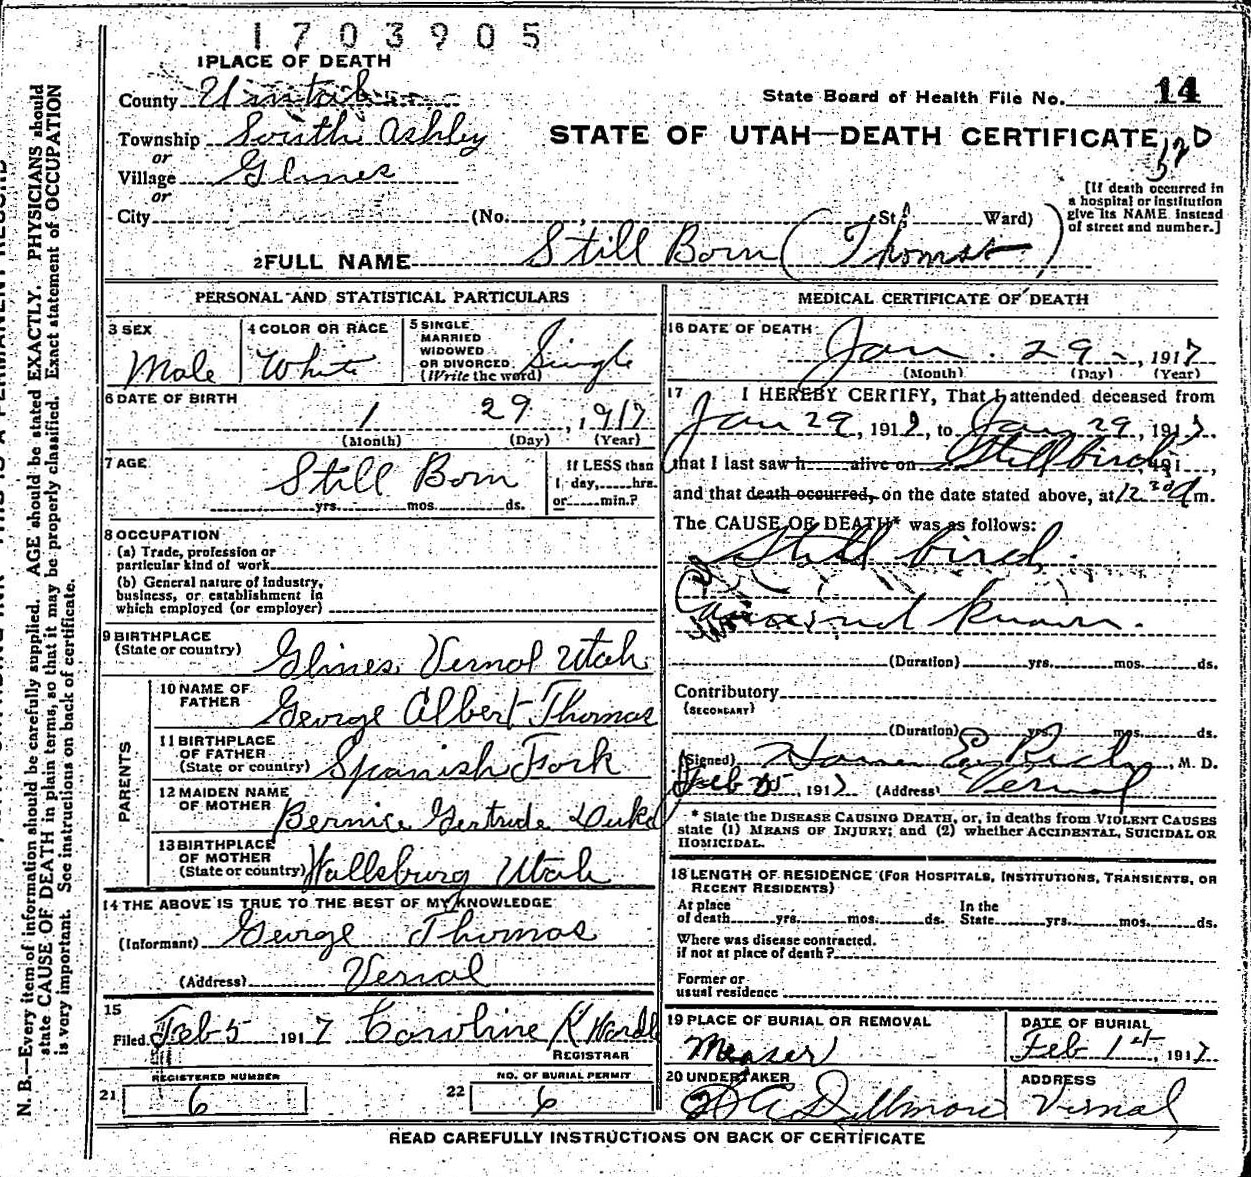 1703905
1 PLACE OF DEATH
County Uintah
State Board of Health File No. 14
Township South Ashley
STATE OF UTAH—DEATH CERTIFICATE
or
Village Glines
or
City (No. , St; Ward)
[If death occurred in
a hospital or institution
give its NAME instead
of street and number.]
2 FULL NAME Still Born (Thomas)
PERSONAL AND STATISTICAL PARTICULARS
3 SEX
Male
4 COLOR OR RACE
White
5 SINGLE
MARRIED
WIDOWED
OR DIVORCED
(Write the word)
Single
6 DATE OF BIRTH
1 29, 1917
(Month) (Day) (Year)
7 AGE
Still Born
yrs. mos. ds.
If LESS than
1 day, hrs.
or min.?
8 OCCUPATION
(a) Trade, profession or
particular kind of work
(b) General nature of Industry,
business, or establishment in
which employed (or employer)
9 BIRTHPLACE
(State or country)
Glines, Vernal Utah
PARENTS
10 NAME OF
FATHER
George Albert Thomas
11 BIRTHPLACE
OF FATHER
(State or country)
Spanish Fork
12 MAIDEN NAME
OF MOTHER
Bernice Gertrude
13 BIRTHPLACE
OF MOTHER
(State or country)
Wallsburg Utah
14 THE ABOVE IS TRUE TO THE BEST OF MY KNOWLEDGE
(Informant) George Thomas
(Address) Vernal
15
Filed Feb 5 1917 Caroline K
REGISTRAR
REGISTERED NUMBER
21 6
NO. OF BURIAL PERMIT
22 6
MEDICAL CERTIFICATE OF DEATH
16 DATE OF DEATH
Jan. 29, 1917
(Month) (Day) (Year)
17 I HEREBY CERTIFY, That I attended deceased from
Jan 29, 1917, to Jan 29, 1917
that I last saw h alive on Still bird, 191 ,
and that death occurred, on the date stated above, at 12 m.
The CAUSE OF DEATH* was as follows:
Still bird
known.
(Duration) yrs. mos. ds.
Contributory
(SECONDARY)
(Duration) yrs. mos. ds.
(Signed) Homer E. Rich, M. D.
Feb 5, 1917 (Address) Vernal
* State the DISEASE CAUSING DEATH, or, in deaths from VIOLENT CAUSES
state (1) MEANS OF INJURY; and (2) whether ACCIDENTAL, SUICIDAL OR
HOMICIDAL.
18 LENGTH OF RESIDENCE (FOR HOSPITALS, INSTITUTIONS, TRANSIENTS, OR
RECENT RESIDENTS)
At place
of death yrs. mos. ds.
In the
State yrs. mos. ds.
Where was disease contracted.
if not at place of death?
Former or
usual residence
19 PLACE OF BURIAL OR REMOVAL
Measer
DATE OF BURIAL
Feb 1st, 1917
20 UNDERTAKER
Dillman
ADDRESS
Vernal
READ CAREFULLY INSTRUCTIONS ON BACK OF CERTIFICATE
N. B.—Every item of information should be carefully supplied. AGE should be stated EXACTLY. PHYSICIANS should
state CAUSE OF DEATH in plain terms, so that it may be properly classified. Exact statement of OCCUPATION
is very important. See instructions on back of certificate.